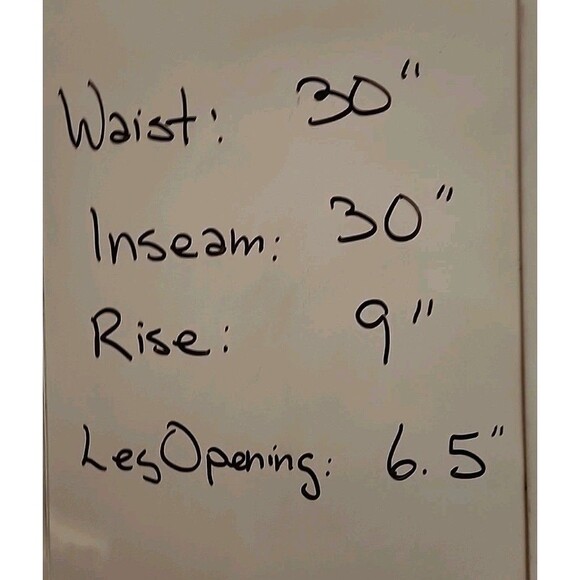 Waist: 30"
Inseam: 30"
Rise: 9"
Leg Opening: 6.5"